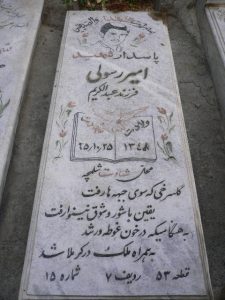 پاسدار شهید
امیر رسولی
فرزند عبدالکریم
ولادت شهادت
۱۳۴۸ ۲۵/۱۰/۶۵
محل شهادت شلمچه
گلسرخی که سوی جبهه ها رفت
یقین با شور و شوق نینوا رفت
به هنگامیکه در خون غوطه ور شد
به همراه ملک در کربلا شد
قطعه ۵۳ ردیف ۷ شماره ۱۵